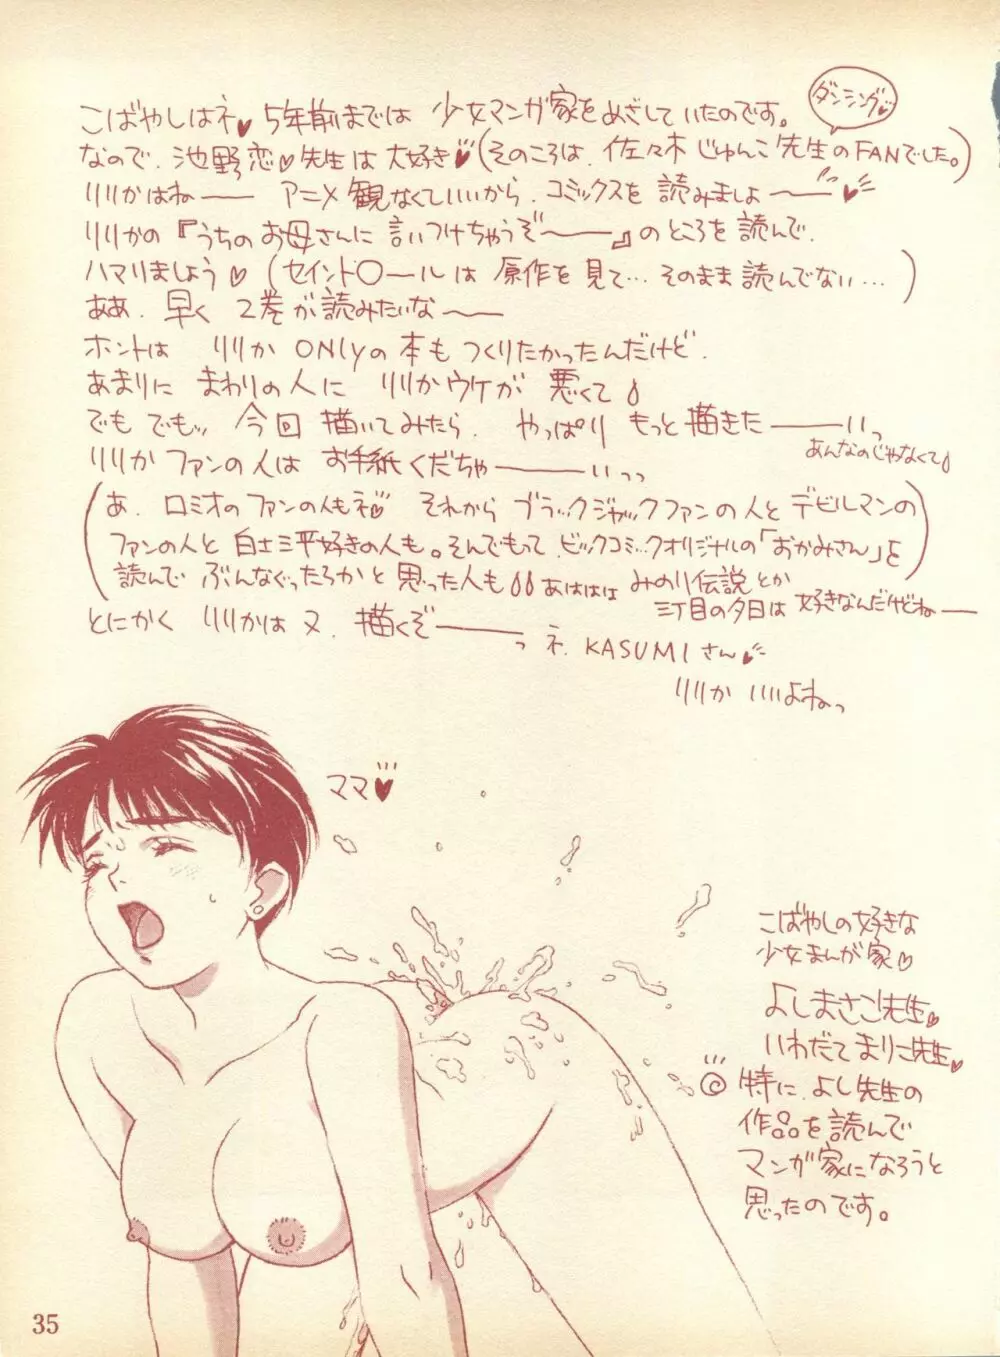 こばやしはネ♥5年前までは 少女マンガ家をめざしていたのです。
ダンシング♥
なので、池野恋♡先生は大好き♥(そのころは、佐々木じゅんこ先生のFANでした。)
りりかはね—— アニメ観なくていいから、コミックスを読みましょ——♥
りりかの『うちのお母さんに言いつけちゃうぞ——』のところを読んで、
ハマりましょう♡(セイント〇ールは原作を見て…そのまま読んでない…)
ああ、早く 2巻が読みたいな——
ホントは りりかONlyの本もつくりたかったんだけど、
あまりに まわりの人に りりかウケが 悪くて
でも でもッ 今回 描いてみたら、 やっぱり もっと描きた——いっ
あんなのじゃなくて
りりかファンの人は お手紙くだちゃ——いっっ
(あ、ロミオのファンの人もネ♥ それから ブラックジャックファンの人とデビルマンの
ファンの人と白土三平好きの人も。そんでもって ビックコミックオリジナルの「おかみさん」を
読んで ぶんなぐったろかと思った人も あははは)
みのり伝説とか
三丁目の夕日は 好きなんだけどね—
とにかく りりかは又、描くぞ——っ
ネ、KASUMIさん♥
りりか いいよねっ
ママ♥
こばやしの好きな
少女まんが家♡
よしまさこ先生♥
いわだてまりこ先生♥
◎特に、よし先生の
作品を読んで
マンガ家になろうと
思ったのです。
35